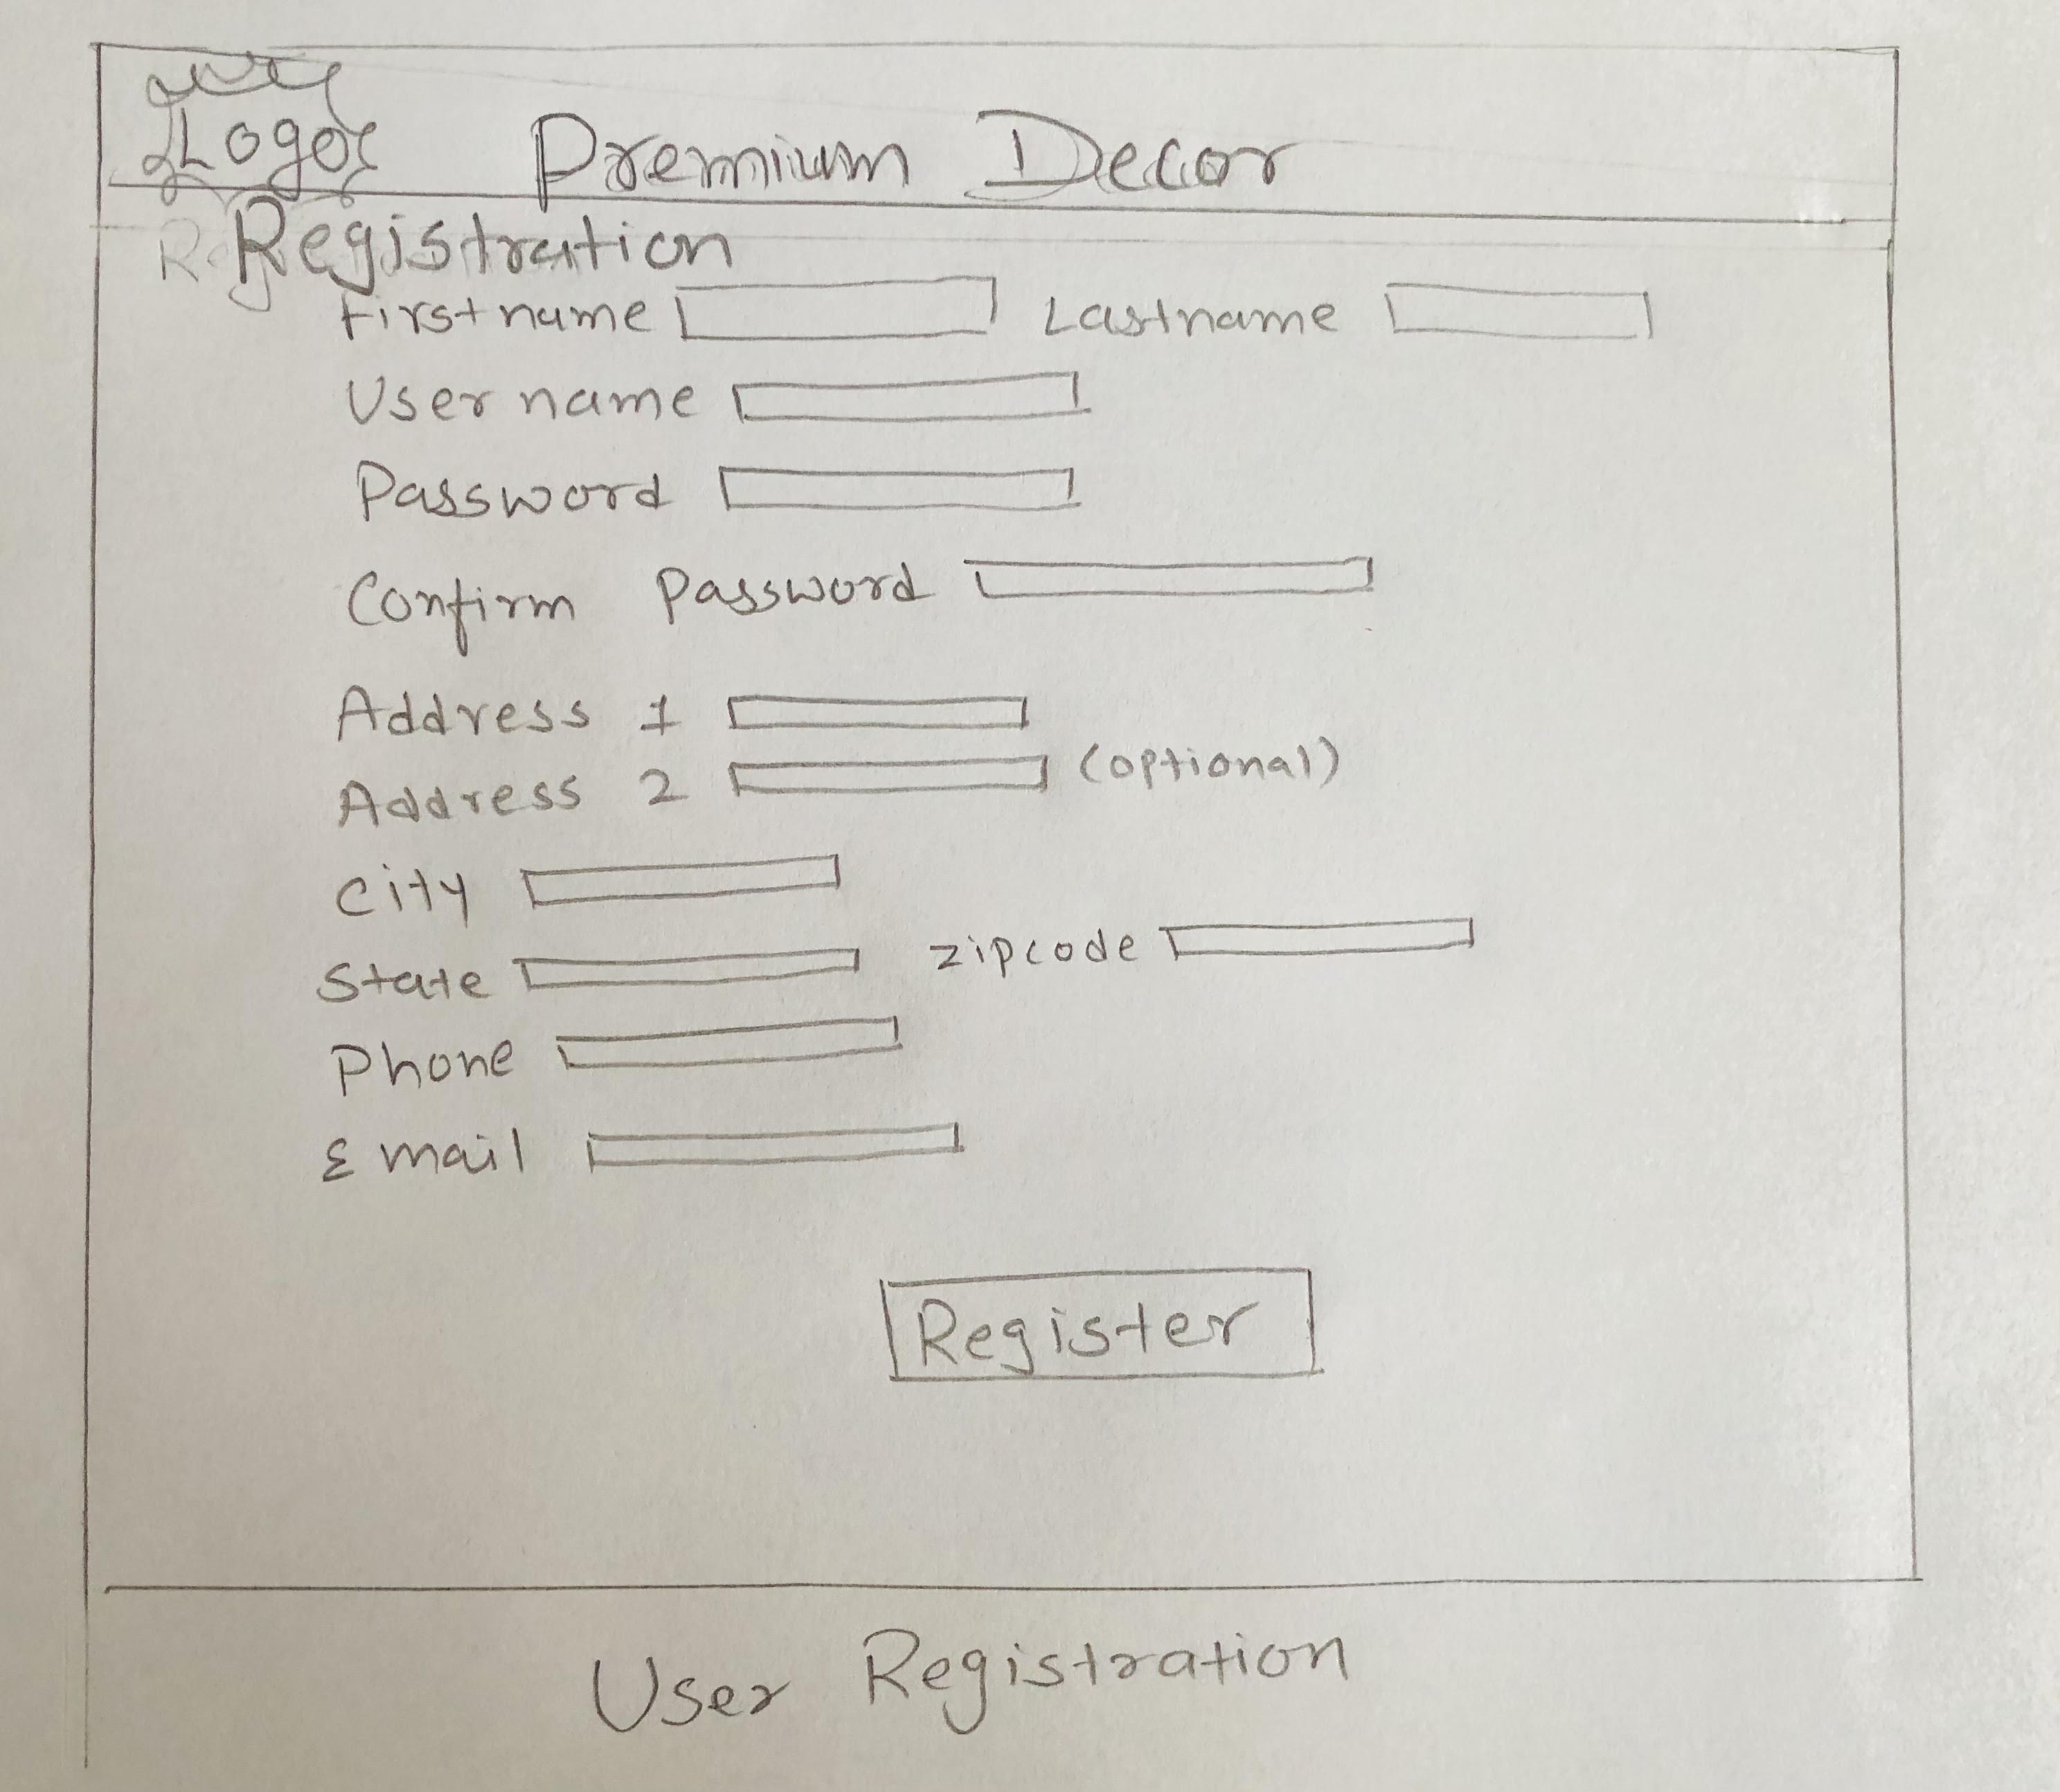 Logo Premium Decor
Registration
Firstname Lastname
User name
Password
Confirm Password
Address 1
Address 2 (optional)
City
State zipcode
Phone
Email
Register
User Registration